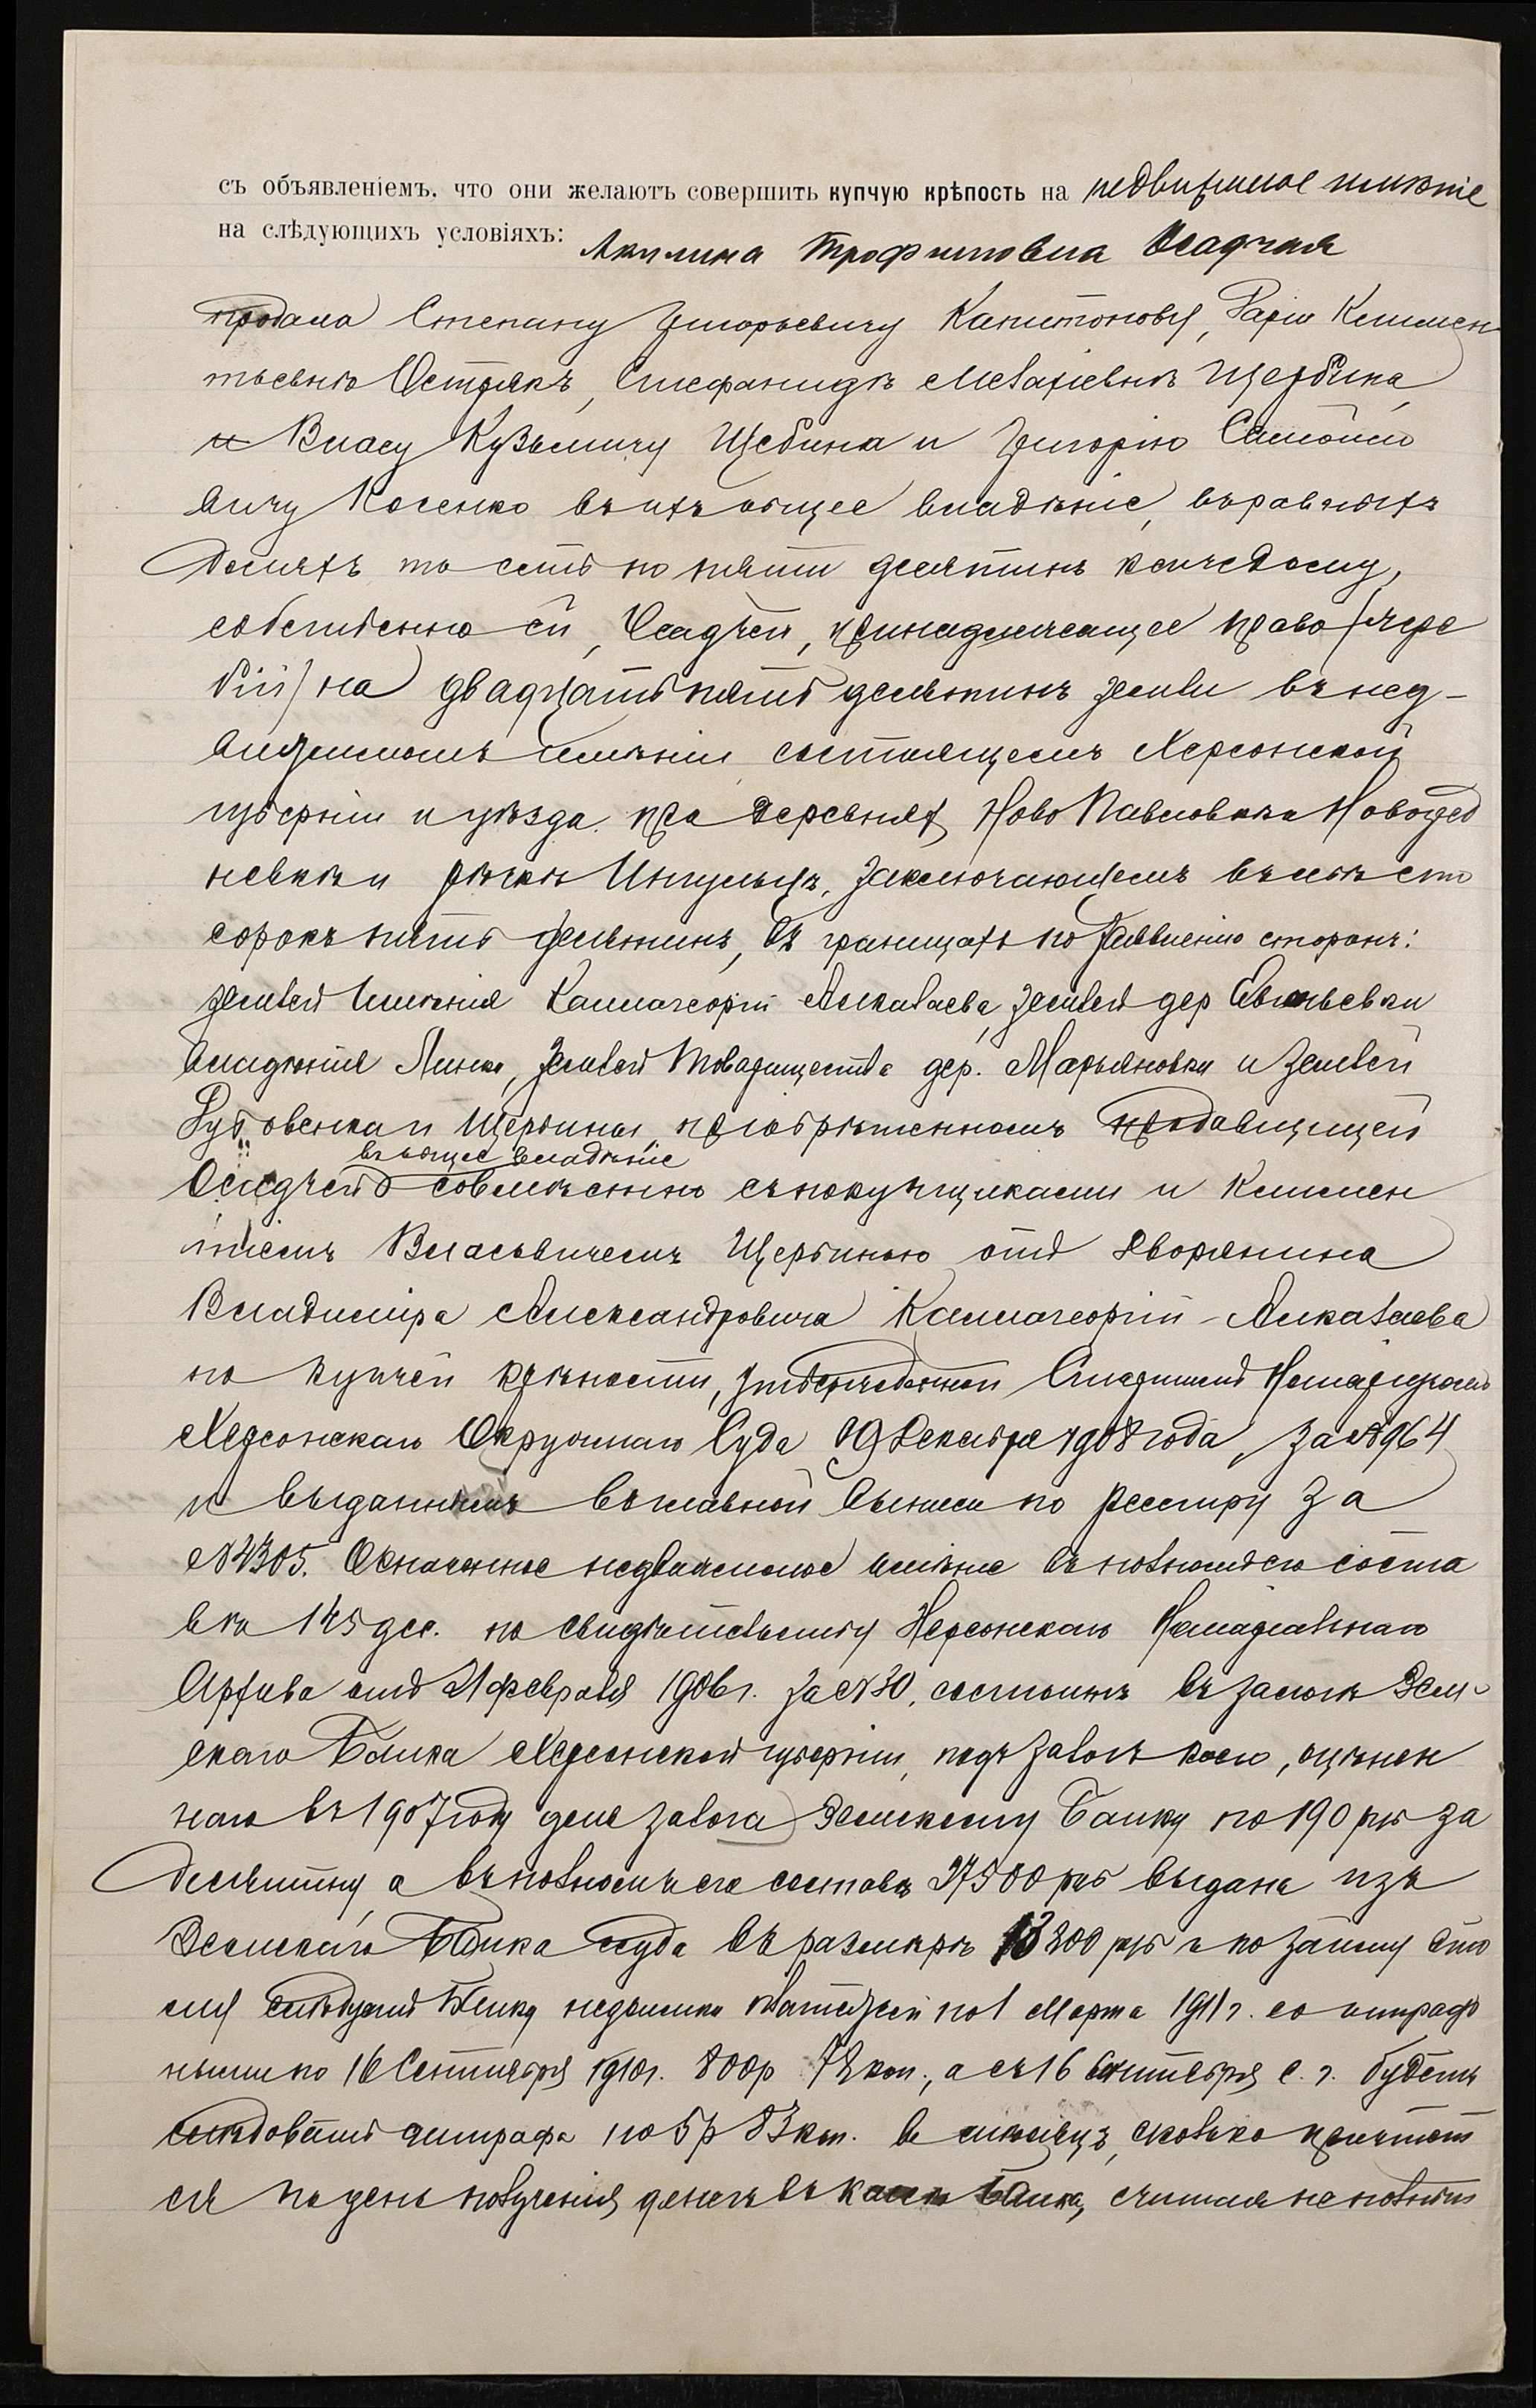 съ объявленіемъ, что они желаютъ совершить купчую крѣпость на недвижимое имѣніе
на слѣдующихъ условіяхъ: Акилина Трофимовна Осадчая
продала Степану Григорьевичу Капитонову, Клемен
тьевнѣ Остракъ, Стефанидѣ Щербина
и Власу Кузьмичу Щебина и Григорію Самойло
вичу Косенко въ ихъ общее владѣніе, въ равныхъ
доляхъ то есть по пяти десятинъ каждому,
собственно ей, Осадчей, принадлежащее право /жре
бій/ на двадцать пять десятинъ земли въ нед-
вижимомъ имѣніи состоящемъ Херсонской
губерніи и уѣзда при деревняхъ Ново Павловкѣ и
невкѣ и рѣкѣ Ингульцъ, заключающемъ въ себѣ сто
сорокъ пять десятинъ, въ границахъ по заявленію сторонъ:
землей имѣнія Калагеоргій Алкалаева, землей дер
владѣнія Линке, землей Товарищества дер. Марьяновки и землей
и Щербины, пріобрѣтенномъ продавщицей
въ общее владѣніе
Осадчей совмѣстно съ покупщиками и Клемен
тіемъ Власьвичемъ Щербиною отъ дворянина
Владиміра Александровича Калагеоргій-Алкалаева
по купчей крѣпости, утвержденной Старшимъ Нотаріусомъ
Херсонскаго Окружнаго Суда 19 Декабря 1908 года, за №964
и выданнымъ въ главной выписи по реестру за
№4305. Означенное недвижимое имѣніе въ полномъ его соста
вѣ 145 дес. по свидѣтельству Херсонскаго Нотаріальнаго
Архива отъ 21 февраля 1906 г. за №30, состоитъ въ залогѣ Зем-
скаго Банка Херсонской губерніи, подъ залогъ коего, оцѣнен
наго въ 1907 году для залога Земскому Банку по 190 руб за
десятину, а въ полномъ его составѣ 27500 руб выдана изъ
Земскаго Банка ссуда въ размѣрѣ 13200 руб и по займу сто
му слѣдуетъ Банку недоимки платежей по 1 Марта 1911 г. со штраф
ными по 16 Сентября 1910 г. 800р 72 коп., а съ 16 Сентября с. г. будетъ
слѣдовать штрафа по 5р 83 коп. въ мѣсяцъ, сколько причтет
ся по день полученія денегъ въ кассѣ Банка, считая не полный